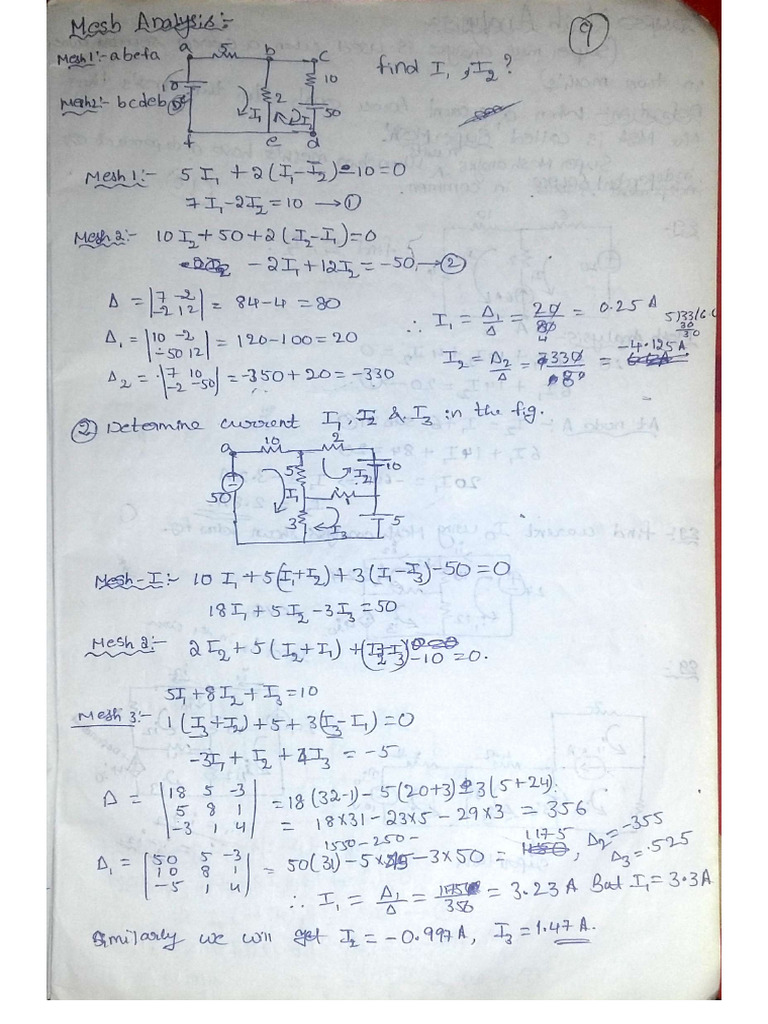 Mesh Analysis:-
9
Mesh1:- abefa
Mesh2:- bcdeb
a 5 b c
10
10
2
50
I1 I2
f e d
find I1, I2?
Mesh 1:- 5I1 + 2(I1-I2) - 10 = 0
7I1-2I2 = 10 → ①
Mesh 2:- 10I2 + 50 + 2(I2-I1) = 0
-2I1 + 12I2 = -50 → ②
Δ = |7 -2; -2 12| = 84-4 = 80
Δ1 = |10 -2; -50 12| = 120-100 = 20
Δ2 = |7 10; -2 -50| = -350+20 = -330
∴ I1 = Δ1/Δ = 20/80 = 0.25 A
I2 = Δ2/Δ = -330/80 = -4.125A
② Determine current I1, I2 & I3 in the fig.
a 10 2
50 5 I1 I2 10
1
3 I3 5
Mesh-I:- 10I1 + 5(I1+I2) + 3(I1-I3) - 50 = 0
18I1 + 5I2 - 3I3 = 50
Mesh 2:- 2I2 + 5(I2+I1) + -10 = 0.
5I1 + 8I2 + I3 = 10
Mesh 3:- 1(I3+I2) + 5 + 3(I3-I1) = 0
-3I1 + I2 + 4I3 = -5
Δ = |18 5 -3; 5 8 1; -3 1 4| = 18(32-1) - 5(20+3) - 3(5+24)
= 18×31 - 23×5 - 29×3 = 356
1550 - 250 -
Δ1 = |50 5 -3; 10 8 1; -5 1 4| = 50(31) - 5×45 - 3×50 = 1175, Δ2 = -355
Δ3 = 525
∴ I1 = Δ1/Δ = 1175/356 = 3.23 A But I1 = 3.3A
Similarly we will get I2 = -0.997A, I3 = 1.47 A.